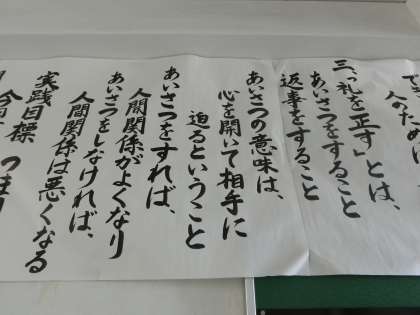 人のため
三、「礼を正す」とは、
あいさつをすること
返事をすること
あいさつの意味は、
心を開いて相手に
迫るということ
あいさつをすれば、
人間関係がよくなり
あいさつをしなければ、
人間関係は悪くなる
実践目標